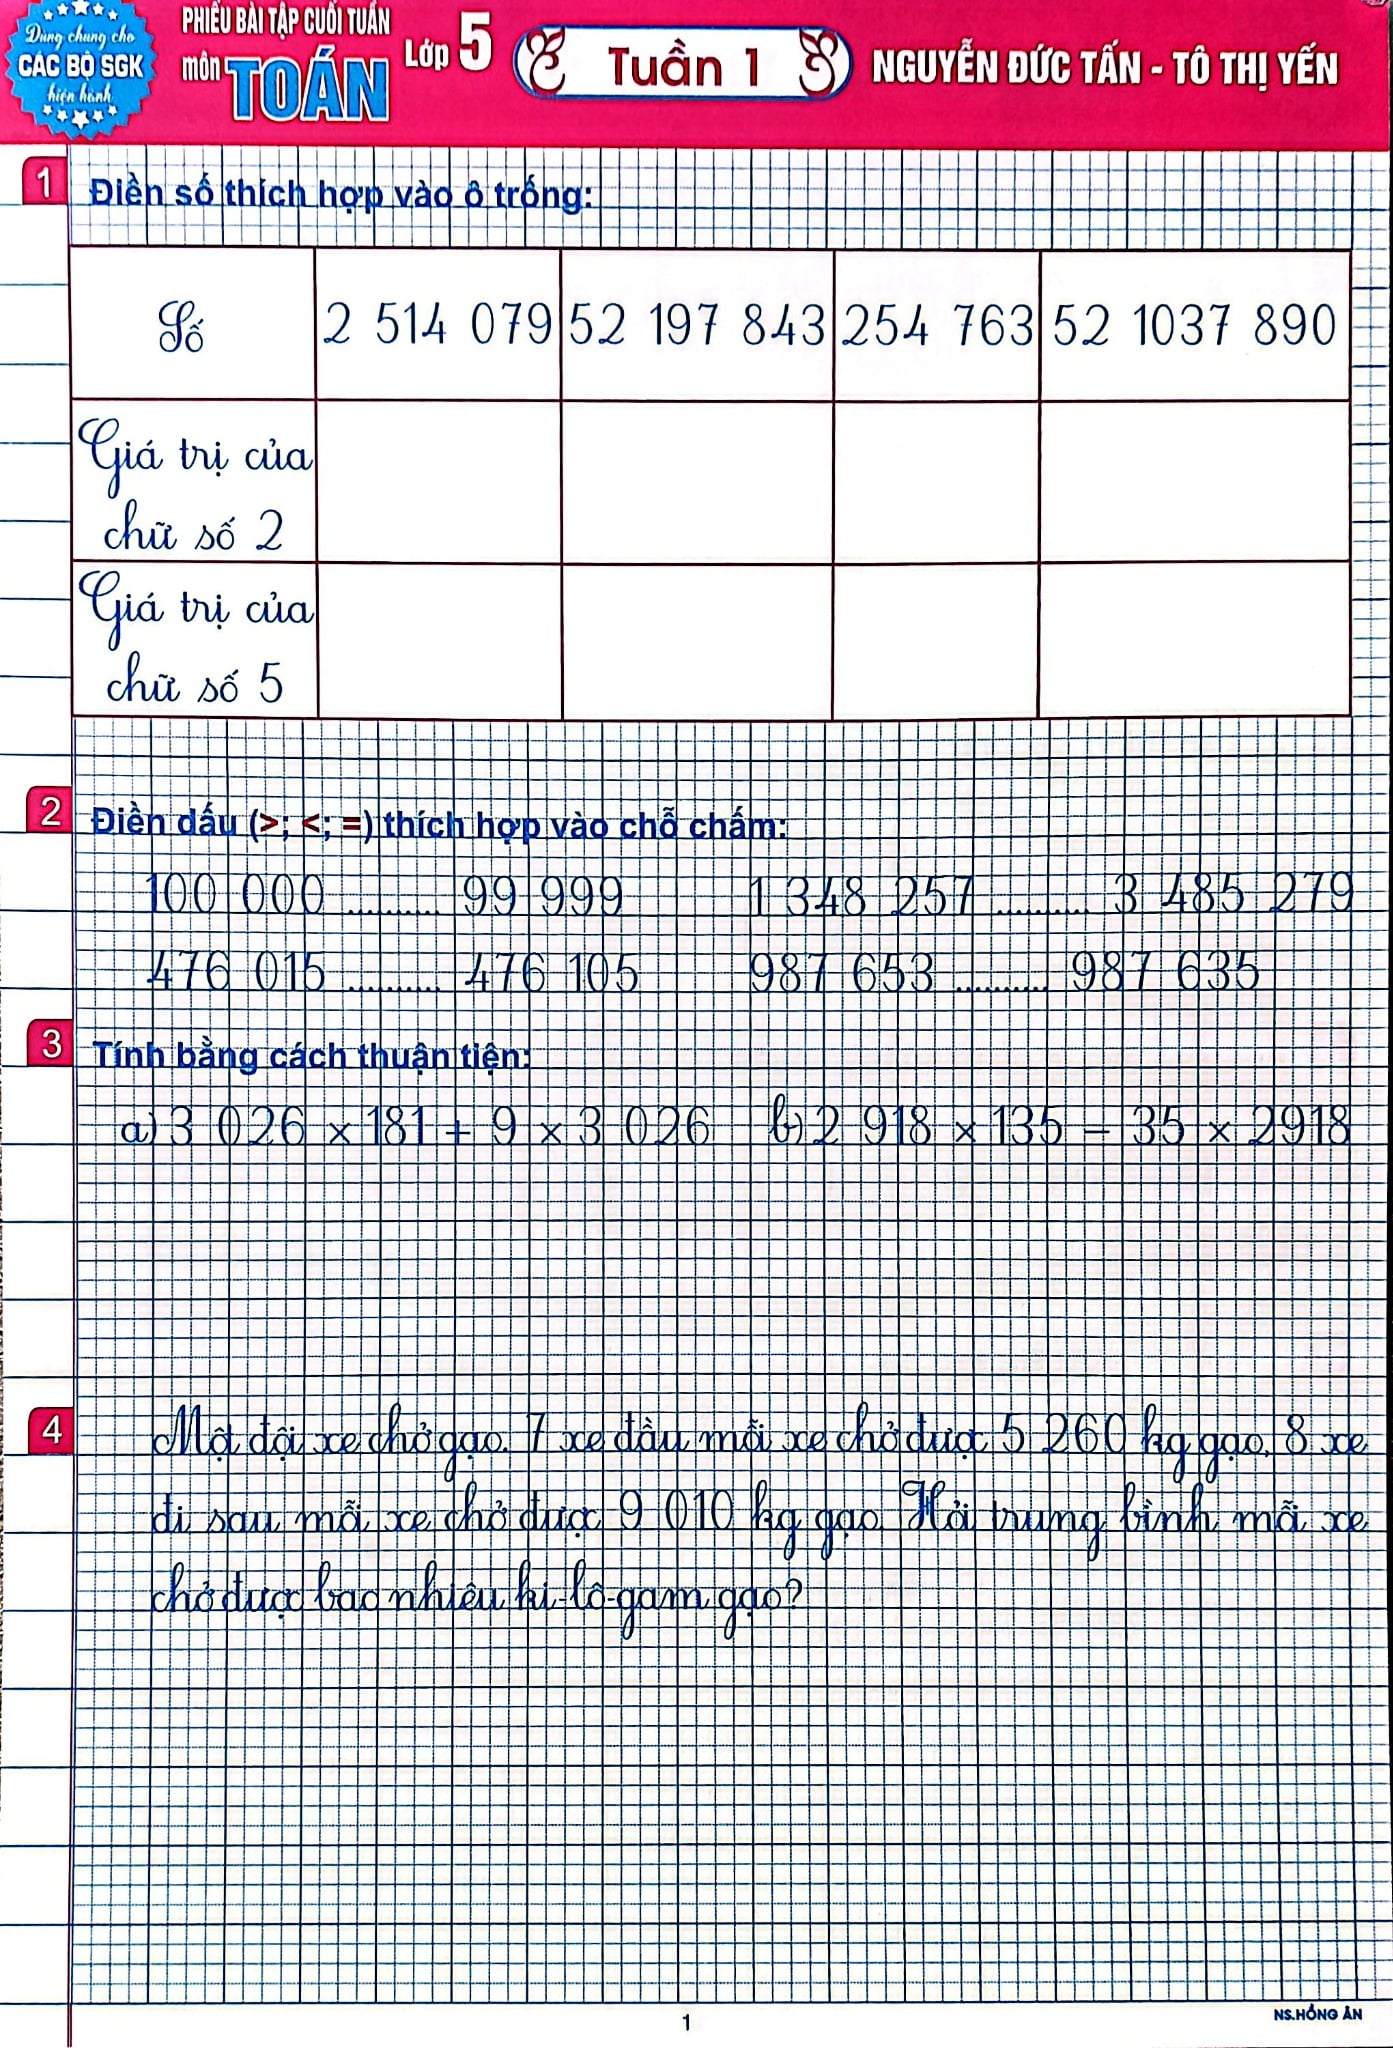 Dùng chung cho
CÁC BỘ SGK
hiện hành
PHIẾU BÀI TẬP CUỐI TUẦN
môn TOÁN Lớp 5
Tuần 1
NGUYỄN ĐỨC TẤN - TÔ THỊ YẾN
1 Điền số thích hợp vào ô trống:
Số 2 514 079 52 197 843 254 763 52 1037 890
Giá trị của
chữ số 2
Giá trị của
chữ số 5
2 Điền dấu (>; <; =) thích hợp vào chỗ chấm:
100 000 .......... 99 999 1 348 257 .......... 3 485 279
476 015 .......... 476 105 987 653 .......... 987 635
3 Tính bằng cách thuận tiện:
a) 3 026 × 181 + 9 × 3 026 b) 2 918 × 135 – 35 × 2918
4 Một đội xe chở gạo. 7 xe đầu mỗi xe chở được 5 260 kg gạo, 8 xe
đi sau mỗi xe chở được 9 010 kg gạo. Hỏi trung bình mỗi xe
chở được bao nhiêu ki-lô-gam gạo?
1
NS.HỒNG ÂN